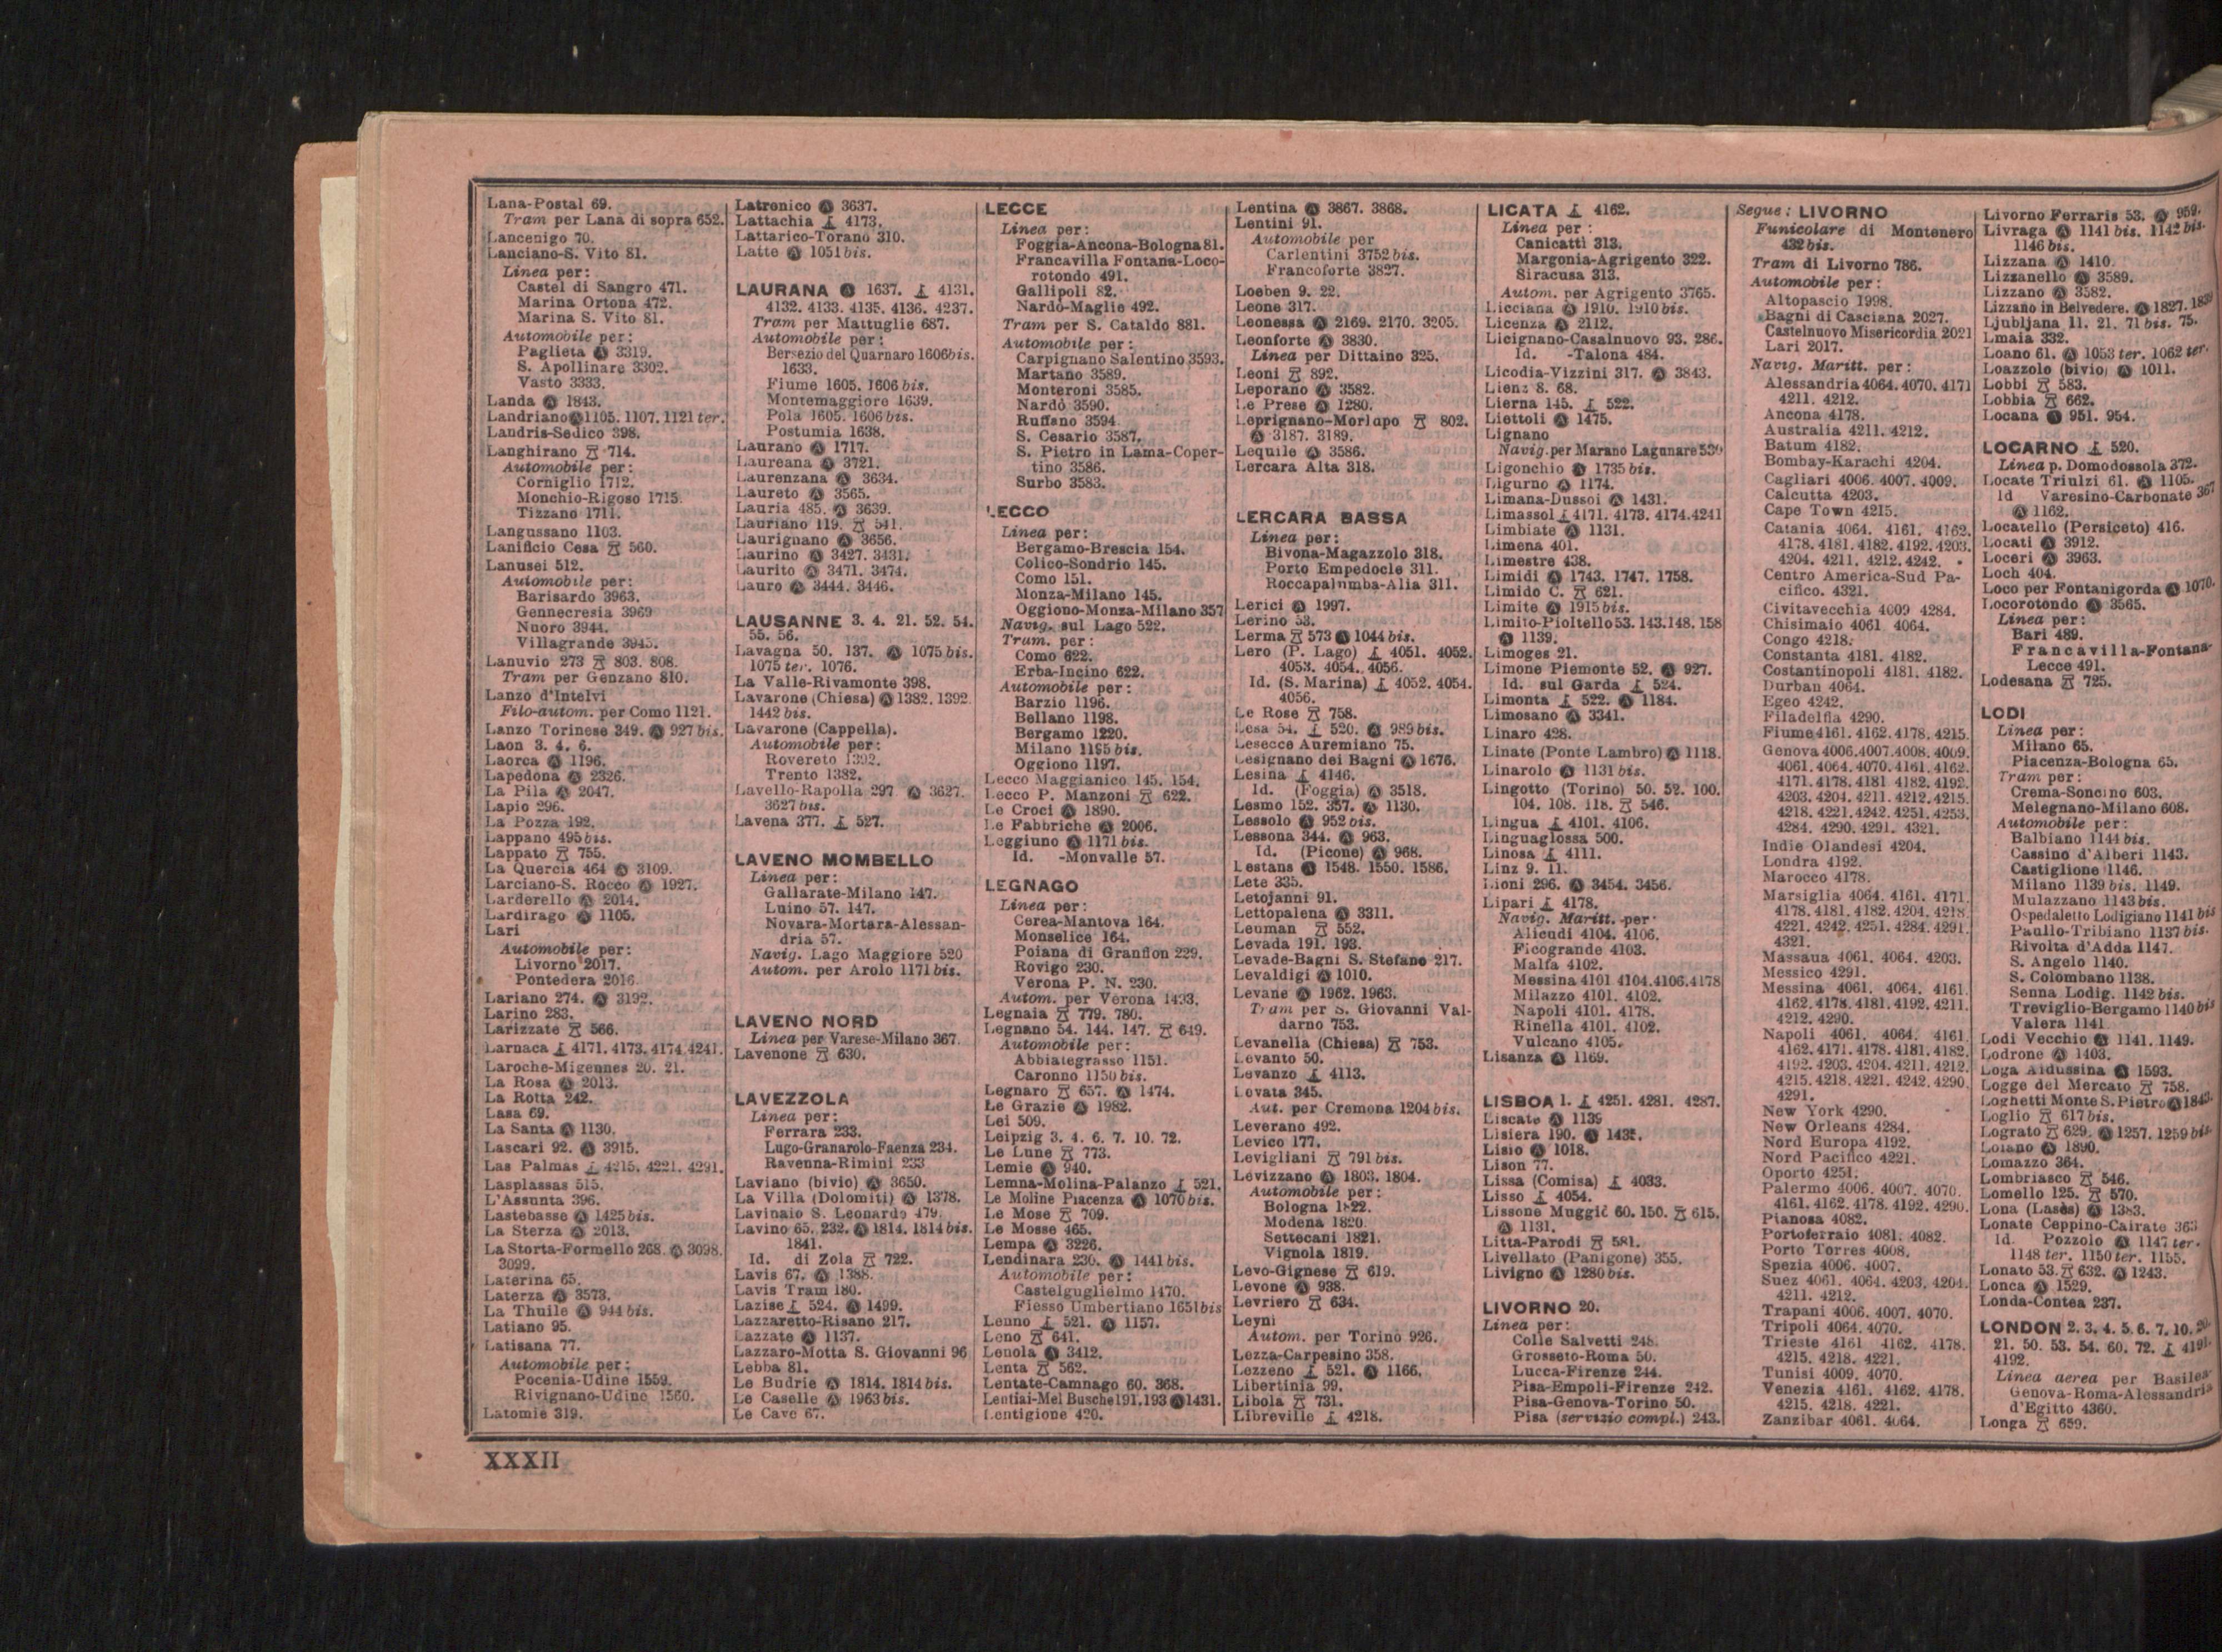 Lana-Postal 69.
Tram per Lana di sopra 652.
Lancenigo 70.
Lanciano-S. Vito 81.
Linea per:
Castel di Sangro 471.
Marina Ortona 472.
Marina S. Vito 81.
Automobile per:
Paglieta Ⓐ 3319.
S. Apollinare 3302.
Vasto 3333.
Landa Ⓐ 1843.
Landriano Ⓐ 1105. 1107. 1121 ter.
Landris-Sedico 398.
Langhirano 714.
Automobile per:
Corniglio 1712.
Monchio-Rigoso 1715.
Tizzano 1711.
Langussano 1103.
Lanificio Cesa 560.
Lanusei 512.
Automobile per:
Barisardo 3963.
Gennecresia 3969
Nuoro 3944.
Villagrande 3945.
Lanuvio 273 803. 808.
Tram per Genzano 810.
Lanzo d'Intelvi
Filo-autom. per Como 1121.
Lanzo Torinese 349. Ⓐ 927 bis.
Laon 3. 4. 6.
Laorca Ⓐ 1196.
Lapedona Ⓐ 2326.
La Pila Ⓐ 2047.
Lapio 296.
La Pozza 192.
Lappano 495 bis.
Lappato 755.
La Quercia 464 Ⓐ 3109.
Larciano-S. Rocco Ⓐ 1927.
Larderello Ⓐ 2014.
Lardirago Ⓐ 1105.
Lari
Automobile per:
Livorno 2017.
Pontedera 2016.
Lariano 274. Ⓐ 3192.
Larino 283.
Larizzate 566.
Larnaca 4171. 4173. 4174. 4241.
Laroche-Migennes 20. 21.
La Rosa Ⓐ 2013.
La Rotta 242.
Lasa 69.
La Santa Ⓐ 1130.
Lascari 92. Ⓐ 3915.
Las Palmas 4215. 4221. 4291.
Lasplassas 515.
L'Assunta 396.
Lastebasse Ⓐ 1425 bis.
La Sterza Ⓐ 2013.
La Storta-Formello 268. Ⓐ 3098.
3099.
Laterina 65.
Laterza Ⓐ 3573.
La Thuile Ⓐ 944 bis.
Latiano 95.
Latisana 77.
Automobile per:
Pocenia-Udine 1559.
Rivignano-Udine 1560.
Latomie 319.
Latronico Ⓐ 3637.
Lattachia 4173.
Lattarico-Torano 310.
Latte Ⓐ 1051 bis.
LAURANA Ⓐ 1637. 4131.
4132. 4133. 4135. 4136. 4237.
Tram per Mattuglie 687.
Automobile per:
Bersezio del Quarnaro 1606 bis.
1633.
Fiume 1605. 1606 bis.
Montemaggiore 1639.
Pola 1605. 1606 bis.
Postumia 1638.
Laurano Ⓐ 1717.
Laureana Ⓐ 3721.
Laurenzana Ⓐ 3634.
Laureto Ⓐ 3565.
Lauria 485. Ⓐ 3639.
Lauriano 119. 541.
Laurignano Ⓐ 3656.
Laurino Ⓐ 3427. 3431.
Laurito Ⓐ 3471. 3474.
Lauro Ⓐ 3444. 3446.
LAUSANNE 3. 4. 21. 52. 54.
55. 56.
Lavagna 50. 137. Ⓐ 1075 bis.
1075 ter. 1076.
La Valle-Rivamonte 398.
Lavarone (Chiesa) Ⓐ 1382. 1392.
1442 bis.
Lavarone (Cappella).
Automobile per:
Rovereto 1392.
Trento 1382.
Lavello-Rapolla 297 Ⓐ 3627.
3627 bis.
Lavena 377. 527.
LAVENO MOMBELLO
Linea per:
Gallarate-Milano 147.
Luino 57. 147.
Novara-Mortara-Alessan-
dria 57.
Navig. Lago Maggiore 520
Autom. per Arolo 1171 bis.
LAVENO NORD
Linea per Varese-Milano 367.
Lavenone 630.
LAVEZZOLA
Linea per:
Ferrara 233.
Lugo-Granarolo-Faenza 234.
Ravenna-Rimini 233
Laviano (bivio) Ⓐ 3650.
La Villa (Dolomiti) Ⓐ 1378.
Lavinaio S. Leonardo 479.
Lavino 65. 232. Ⓐ 1814. 1814 bis.
1841.
Id. di Zola 722.
Lavis 67. Ⓐ 1388.
Lavis Tram 180.
Lazise 524. Ⓐ 1499.
Lazzaretto-Risano 217.
Lazzate Ⓐ 1137.
Lazzaro-Motta S. Giovanni 96
Lebba 81.
Le Budrie Ⓐ 1814. 1814 bis.
Le Caselle Ⓐ 1963 bis.
Le Cave 67.
LECCE
Linea per:
Foggia-Ancona-Bologna 81.
Francavilla Fontana-Loco-
rotondo 491.
Gallipoli 82.
Nardò-Maglie 492.
Tram per S. Cataldo 881.
Automobile per:
Carpignano Salentino 3593.
Martano 3589.
Monteroni 3585.
Nardò 3590.
Ruffano 3594.
S. Cesario 3587.
S. Pietro in Lama-Coper-
tino 3586.
Surbo 3583.
LECCO
Linea per:
Bergamo-Brescia 154.
Colico-Sondrio 145.
Como 151.
Monza-Milano 145.
Oggiono-Monza-Milano 357
Navig. sul Lago 522.
Tram. per:
Como 622.
Erba-Incino 622.
Automobile per:
Barzio 1196.
Bellano 1198.
Bergamo 1220.
Milano 1195 bis.
Oggiono 1197.
Lecco Maggianico 145. 154.
Lecco P. Manzoni 622.
Le Croci Ⓐ 1890.
Le Fabbriche Ⓐ 2006.
Leggiuno Ⓐ 1171 bis.
Id. -Monvalle 57.
LEGNAGO
Linea per:
Cerea-Mantova 164.
Monselice 164.
Poiana di Granfion 229.
Rovigo 230.
Verona P. N. 230.
Autom. per Verona 1493.
Legnaia 779. 780.
Legnano 54. 144. 147. 649.
Automobile per:
Abbiategrasso 1151.
Caronno 1150 bis.
Legnaro 657. Ⓐ 1474.
Le Grazie Ⓐ 1982.
Lei 509.
Leipzig 3. 4. 6. 7. 10. 72.
Le Lune 773.
Lemie Ⓐ 940.
Lemna-Molina-Palanzo 521.
Le Moline Piacenza Ⓐ 1070 bis.
Le Mose 709.
Le Mosse 465.
Lempa Ⓐ 3226.
Lendinara 230. Ⓐ 1441 bis.
Automobile per:
Castelguglielmo 1470.
Fiesso Umbertiano 1651 bis
Lenno 521. Ⓐ 1157.
Leno 641.
Lenola Ⓐ 3412.
Lenta 562.
Lentate-Camnago 60. 368.
Lentiai-Mel Busche 191. 193 Ⓐ 1431.
Lentigione 420.
Lentina Ⓐ 3867. 3868.
Lentini 91.
Automobile per
Carlentini 3752 bis.
Francoforte 3827.
Loeben 9. 22.
Leone 317.
Leonessa Ⓐ 2169. 2170. 3205.
Leonforte Ⓐ 3830.
Linea per Dittaino 325.
Leoni 892.
Leporano Ⓐ 3582.
Le Prese Ⓐ 1280.
Leprignano-Morlupo 802.
Ⓐ 3187. 3189.
Lequile Ⓐ 3586.
Lercara Alta 318.
LERCARA BASSA
Linea per:
Bivona-Magazzolo 318.
Porto Empedocle 311.
Roccapalumba-Alia 311.
Lerici Ⓐ 1997.
Lerino 53.
Lerma 573 Ⓐ 1044 bis.
Lero (P. Lago) 4051. 4052.
4053. 4054. 4056.
Id. (S. Marina) 4052. 4054.
4056.
Le Rose 758.
Lesa 54. 520. Ⓐ 989 bis.
Lesecce Auremiano 75.
Lesignano dei Bagni Ⓐ 1676.
Lesina 4146.
Id. (Foggia) Ⓐ 3518.
Lesmo 152. 357. Ⓐ 1130.
Lessolo Ⓐ 952 bis.
Lessona 344. Ⓐ 963.
Id. (Picone) Ⓐ 968.
Lestans Ⓐ 1548. 1550. 1586.
Lete 335.
Letojanni 91.
Lettopalena Ⓐ 3311.
Leuman 552.
Levada 191. 193.
Levade-Bagni S. Stefano 217.
Levaldigi Ⓐ 1010.
Levane Ⓐ 1962. 1963.
Tram per S. Giovanni Val-
darno 753.
Levanella (Chiesa) 753.
Levanto 50.
Levanzo 4113.
Levata 345.
Aut. per Cremona 1204 bis.
Leverano 492.
Levico 177.
Levigliani 791 bis.
Levizzano Ⓐ 1803. 1804.
Automobile per:
Bologna 1822.
Modena 1820.
Settecani 1821.
Vignola 1819.
Levo-Gignese 619.
Levone Ⓐ 938.
Levriero 634.
Leyni
Autom. per Torino 926.
Lezza-Carpesino 358.
Lezzeno 521. Ⓐ 1166.
Libertinia 99.
Libola 731.
Libreville 4218.
LICATA 4162.
Linea per:
Canicattì 313.
Margonia-Agrigento 322.
Siracusa 313.
Autom. per Agrigento 3765.
Licciana Ⓐ 1910. 1910 bis.
Licenza Ⓐ 2112.
Licignano-Casalnuovo 93. 286.
Id. -Talona 484.
Licodia-Vizzini 317. Ⓐ 3843.
Lienz 8. 68.
Lierna 145. 522.
Liettoli Ⓐ 1475.
Lignano
Navig. per Marano Lagunare 530
Ligonchio Ⓐ 1735 bis.
Ligurno Ⓐ 1174.
Limana-Dussoi Ⓐ 1431.
Limassol 4171. 4173. 4174. 4241
Limbiate Ⓐ 1131.
Limena 401.
Limestre 438.
Limidi Ⓐ 1743. 1747. 1758.
Limido C. 621.
Limite Ⓐ 1915 bis.
Limito-Pioltello 53. 143. 148. 158
Ⓐ 1139.
Limoges 21.
Limone Piemonte 52. Ⓐ 927.
Id. sul Garda 524.
Limonta 522. Ⓐ 1184.
Limosano Ⓐ 3341.
Linaro 428.
Linate (Ponte Lambro) Ⓐ 1118.
Linarolo Ⓐ 1131 bis.
Lingotto (Torino) 50. 52. 100.
104. 108. 118. 546.
Lingua 4101. 4106.
Linguaglossa 500.
Linosa 4111.
Linz 9. 11.
Lioni 296. Ⓐ 3454. 3456.
Lipari 4178.
Navig. Maritt. per:
Alicudi 4104. 4106.
Ficogrande 4103.
Malfa 4102.
Messina 4101 4104. 4106. 4178
Milazzo 4101. 4102.
Napoli 4101. 4178.
Rinella 4101. 4102.
Vulcano 4105.
Lisanza Ⓐ 1169.
LISBOA 1. 4251. 4281. 4287.
Liscate Ⓐ 1139
Lisiera 190. Ⓐ
Lisio Ⓐ 1018.
Lison 77.
Lissa (Comisa) 4033.
Lisso 4054.
Lissone Muggiò 60. 150. 615.
Ⓐ 1131.
Litta-Parodi 581.
Livellato (Panigone) 355.
Livigno Ⓐ 1280 bis.
LIVORNO 20.
Linea per:
Colle Salvetti 248.
Grosseto-Roma 50.
Lucca-Firenze 244.
Pisa-Empoli-Firenze 242.
Pisa-Genova-Torino 50.
Pisa (servizio compl.) 243.
Segue: LIVORNO
Funicolare di Montenero
432 bis.
Tram di Livorno 786.
Automobile per:
Altopascio 1998.
Bagni di Casciana 2027.
Castelnuovo Misericordia 2021
Lari 2017.
Navig. Maritt. per:
Alessandria 4064. 4070. 4171
4211. 4212.
Ancona 4178.
Australia 4211. 4212.
Batum 4182.
Bombay-Karachi 4204.
Cagliari 4006. 4007. 4009.
Calcutta 4203.
Cape Town 4215.
Catania 4064. 4161. 4162.
4178. 4181. 4182. 4192. 4203.
4204. 4211. 4212. 4242.
Centro America-Sud Pa-
cifico. 4321.
Civitavecchia 4009 4284.
Chisimaio 4061 4064.
Congo 4218.
Constanta 4181. 4182.
Costantinopoli 4181. 4182.
Durban 4064.
Egeo 4242.
Filadelfia 4290.
Fiume 4161. 4162. 4178. 4215.
Genova 4006. 4007. 4008. 4009.
4061. 4064. 4070. 4161. 4162.
4171. 4178. 4181 4182. 4192.
4203. 4204. 4211. 4212. 4215.
4218. 4221. 4242. 4251. 4253.
4284. 4290. 4291. 4321.
Indie Olandesi 4204.
Londra 4192.
Marocco 4178.
Marsiglia 4064. 4161. 4171.
4178. 4181. 4182. 4204. 4218.
4221. 4242. 4251. 4284. 4291.
4321.
Massaua 4061. 4064. 4203.
Messico 4291.
Messina 4061. 4064. 4161.
4162. 4178. 4181. 4192. 4211.
4212. 4290.
Napoli 4061. 4064. 4161
4162. 4171. 4178. 4181. 4182.
4192. 4203. 4204. 4211. 4212.
4215. 4218. 4221. 4242. 4290.
4291.
New York 4290.
New Orleans 4284.
Nord Europa 4192.
Nord Pacifico 4221.
Oporto 4251.
Palermo 4006. 4007. 4070.
4161. 4162. 4178. 4192. 4290.
Pianosa 4082.
Portoferraio 4081. 4082.
Porto Torres 4008.
Spezia 4006. 4007.
Suez 4061. 4064. 4203. 4204.
4211. 4212.
Trapani 4006. 4007. 4070.
Tripoli 4064. 4070.
Trieste 4161 4162. 4178.
4215. 4218. 4221.
Tunisi 4009. 4070.
Venezia 4161. 4162. 4178.
4215. 4218. 4221.
Zanzibar 4061. 4064.
Livorno Ferraris 53. Ⓐ 959.
Livraga Ⓐ 1141 bis. 1142 bis.
1146 bis.
Lizzana Ⓐ 1410.
Lizzanello Ⓐ 3589.
Lizzano Ⓐ 3582.
Lizzano in Belvedere. Ⓐ 1827. 1839
Ljubljana 11. 21. 71 bis. 75.
Lmaia 332.
Loano 61. Ⓐ 1053 ter. 1062 ter.
Loazzolo (bivio) Ⓐ 1011.
Lobbi 583.
Lobbia 662.
Locana Ⓐ 951. 954.
LOCARNO 520.
Linea p. Domodossola 372.
Locate Triulzi 61. Ⓐ 1105.
Id Varesino-Carbonate 367
Ⓐ 1162.
Locatello (Persiceto) 416.
Locati Ⓐ 3912.
Loceri Ⓐ 3963.
Loch 404.
Loco per Fontanigorda Ⓐ 1070.
Locorotondo Ⓐ 3565.
Linea per:
Bari 489.
Francavilla-Fontana-
Lecce 491.
Lodesana 725.
LODI
Linea per:
Milano 65.
Piacenza-Bologna 65.
Tram per:
Crema-Soncino 603.
Melegnano-Milano 608.
Automobile per:
Balbiano 1144 bis.
Cassino d'Alberi 1143.
Castiglione 1146.
Milano 1139 bis. 1149.
Mulazzano 1143 bis.
Ospedaletto Lodigiano 1141 bis
Paullo-Tribiano 1137 bis.
Rivolta d'Adda 1147.
S. Angelo 1140.
S. Colombano 1138.
Senna Lodig. 1142 bis.
Treviglio-Bergamo 1140 bis
Valera 1141
Lodi Vecchio Ⓐ 1141. 1149.
Lodrone Ⓐ 1403.
Loga Aidussina Ⓐ 1593.
Logge del Mercato 758.
Loghetti Monte S. Pietro Ⓐ 1843.
Loglio 617 bis.
Lograto 629. Ⓐ 1257. 1259 bis.
Loiano Ⓐ 1890.
Lomazzo 364.
Lombriasco 546.
Lomello 125. 570.
Lona (Lasès) Ⓐ 1383.
Lonate Ceppino-Cairate 363
Id. Pozzolo Ⓐ 1147 ter.
1148 ter. 1150 ter. 1155.
Lonato 53. 632. Ⓐ 1243.
Lonca Ⓐ 1529.
Londa-Contea 237.
LONDON 2. 3. 4. 5. 6. 7. 10. 20.
21. 50. 53. 54. 60. 72. 4191.
4192.
Linea aerea per Basilea-
Genova-Roma-Alessandria
d'Egitto 4360.
Longa 659.
XXXII